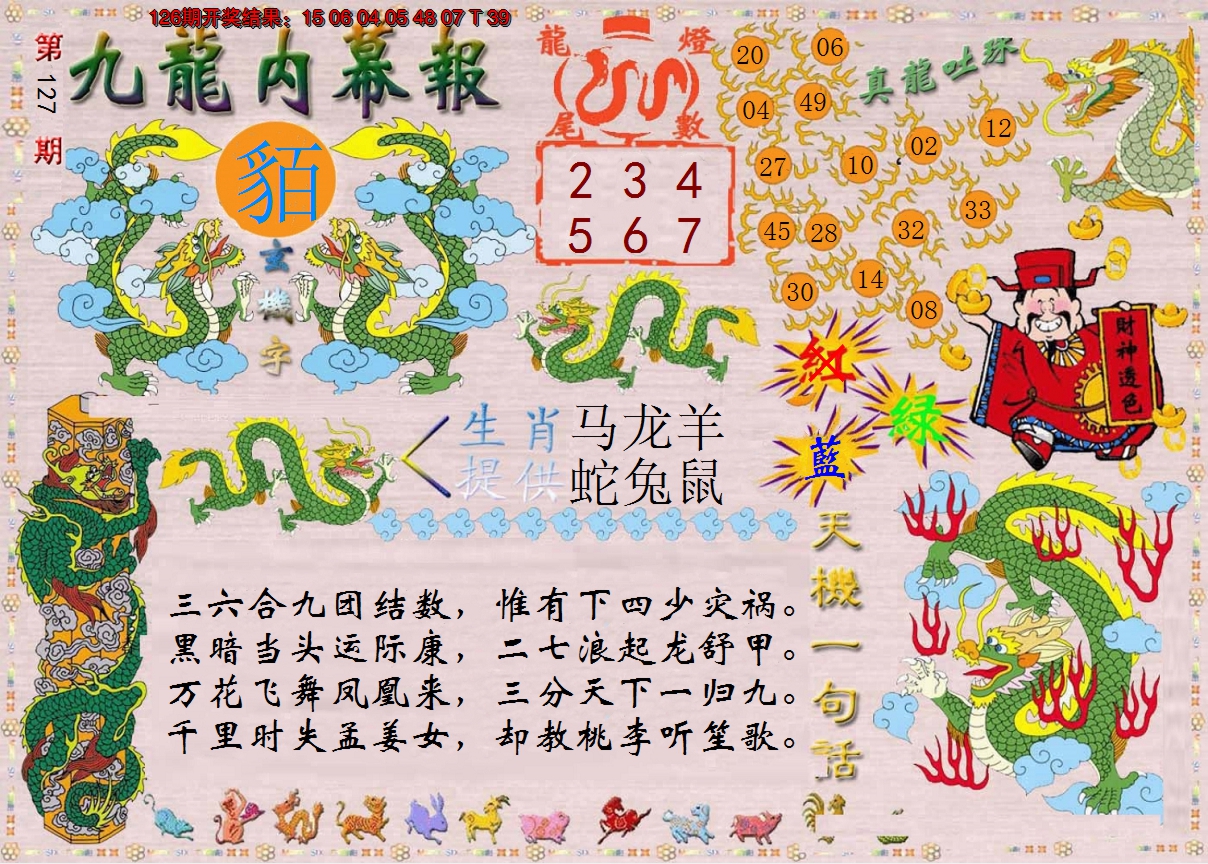 126期开奖结果：15 06 04 05 48 07 T 39
第127期
九龍内幕報
貊
玄機字
龍燈尾數
2 3 4
5 6 7
真龍吐珠
20
06
04
49
27
10
02
12
45
28
32
33
30
14
08
財神透色
紅
綠
藍
生肖提供
马龙羊
蛇兔鼠
天機一句話
三六合九团结数，惟有下四少灾祸。
黑暗当头运际康，二七浪起龙舒甲。
万花飞舞凤凰来，三分天下一归九。
千里时失孟姜女，却教桃李听笙歌。